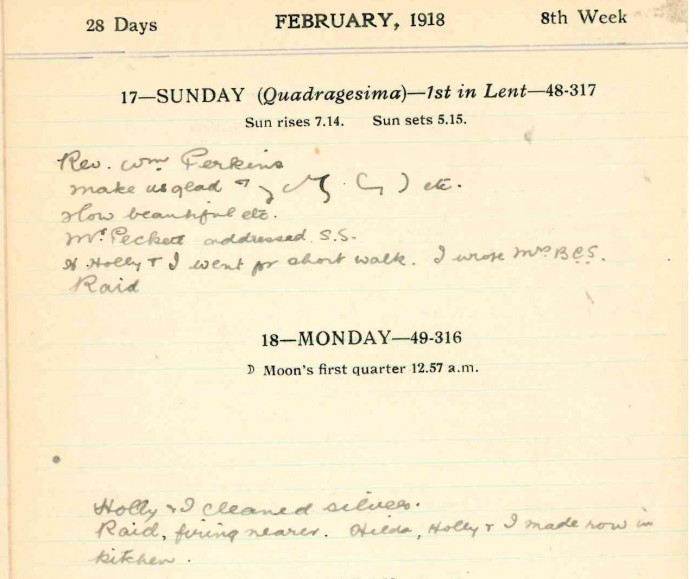 28 Days FEBRUARY, 1918 8th Week
17—SUNDAY (Quadragesima)—1st in Lent—48-317
Sun rises 7.14. Sun sets 5.15.
Rev. Wm Perkins
make us glad etc.
How beautiful etc.
Mr. Peckett addressed S.S.
Holly & I went for short walk. I wrote Mrs B.
Raid
18—MONDAY—49-316
☽ Moon's first quarter 12.57 a.m.
Holly & I cleaned silver.
Raid, firing nearer. Hilda, Holly & I made row in
kitchen.